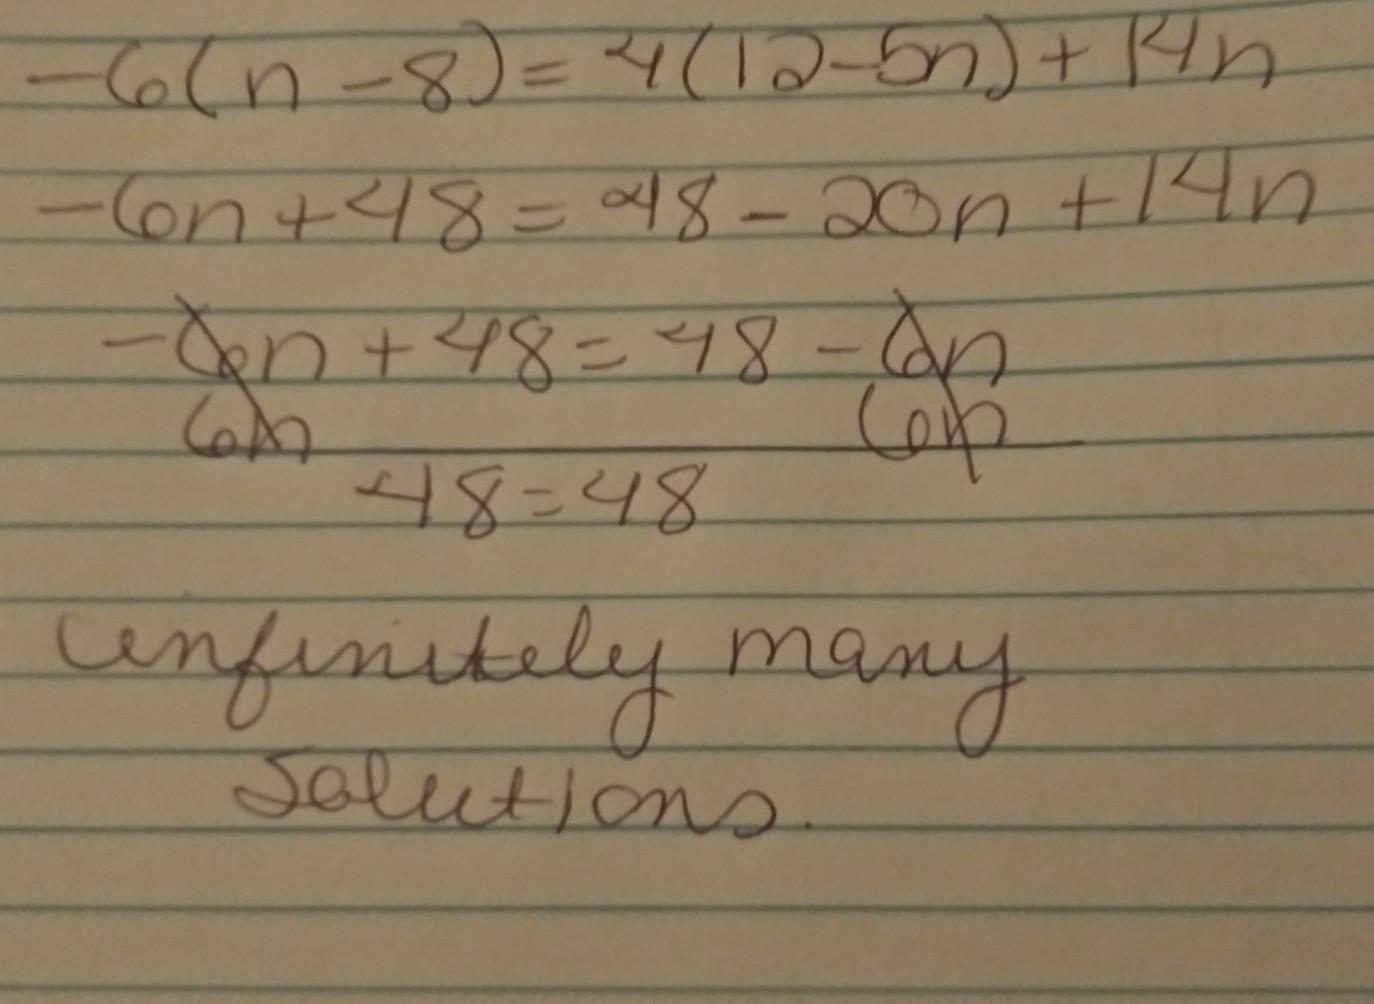 -6(n-8)=4(12-5n)+14n
-6n+48=48-20n+14n
-6n+48=48-6n
6n 6n
48=48
infinitely many
solutions.